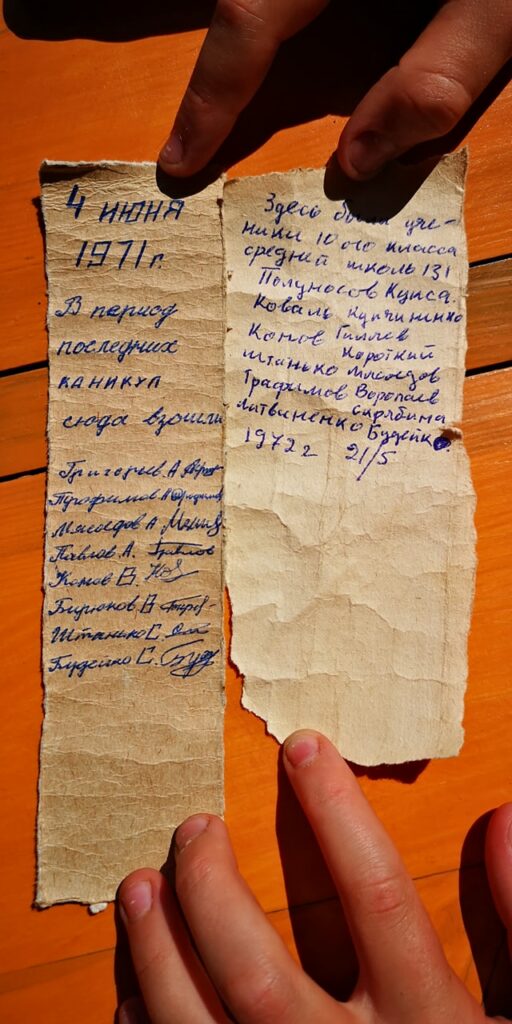 4 июня
1971 г.
В период
последних
каникул
сюда взошли
Григорьев А
Трофимов А
Мясоедов А
Павлов А.
Комов В.
Бирюков В
Штанько С.
Будейко С.
Здесь были уче-
ники 10ого класса
средний школь 131
Полуносов Купса.
Коваль Купчиненко
Комов Гиллев
Короткий
Штанько Мясоедов
Трафимов Воропаев
Скрябина
Литвиненко Будейко.
1972 г 21/5